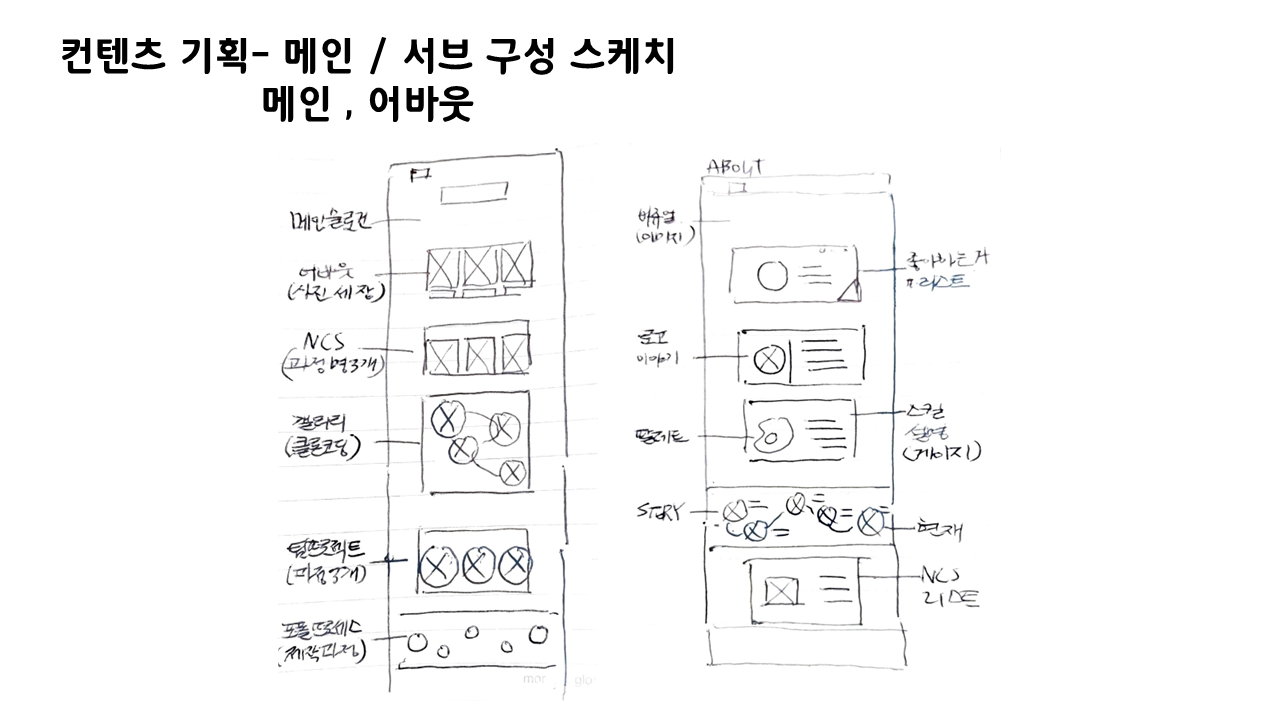 컨텐츠 기획- 메인 / 서브 구성 스케치
메인 , 어바웃
메인슬로건
어바웃
(사진 세 장)
NCS
(과정 명3개)
갤러리
(클론코딩)
팀프로젝트
(과정3개)
포폴프로세스
(제작과정)
mor
glo
ABOUT
비쥬얼
(이미지)
좋아하는거
리스트
로고
이야기
팔레트
스킬
설명
(게이지)
STORY
현재
NCS
리스트